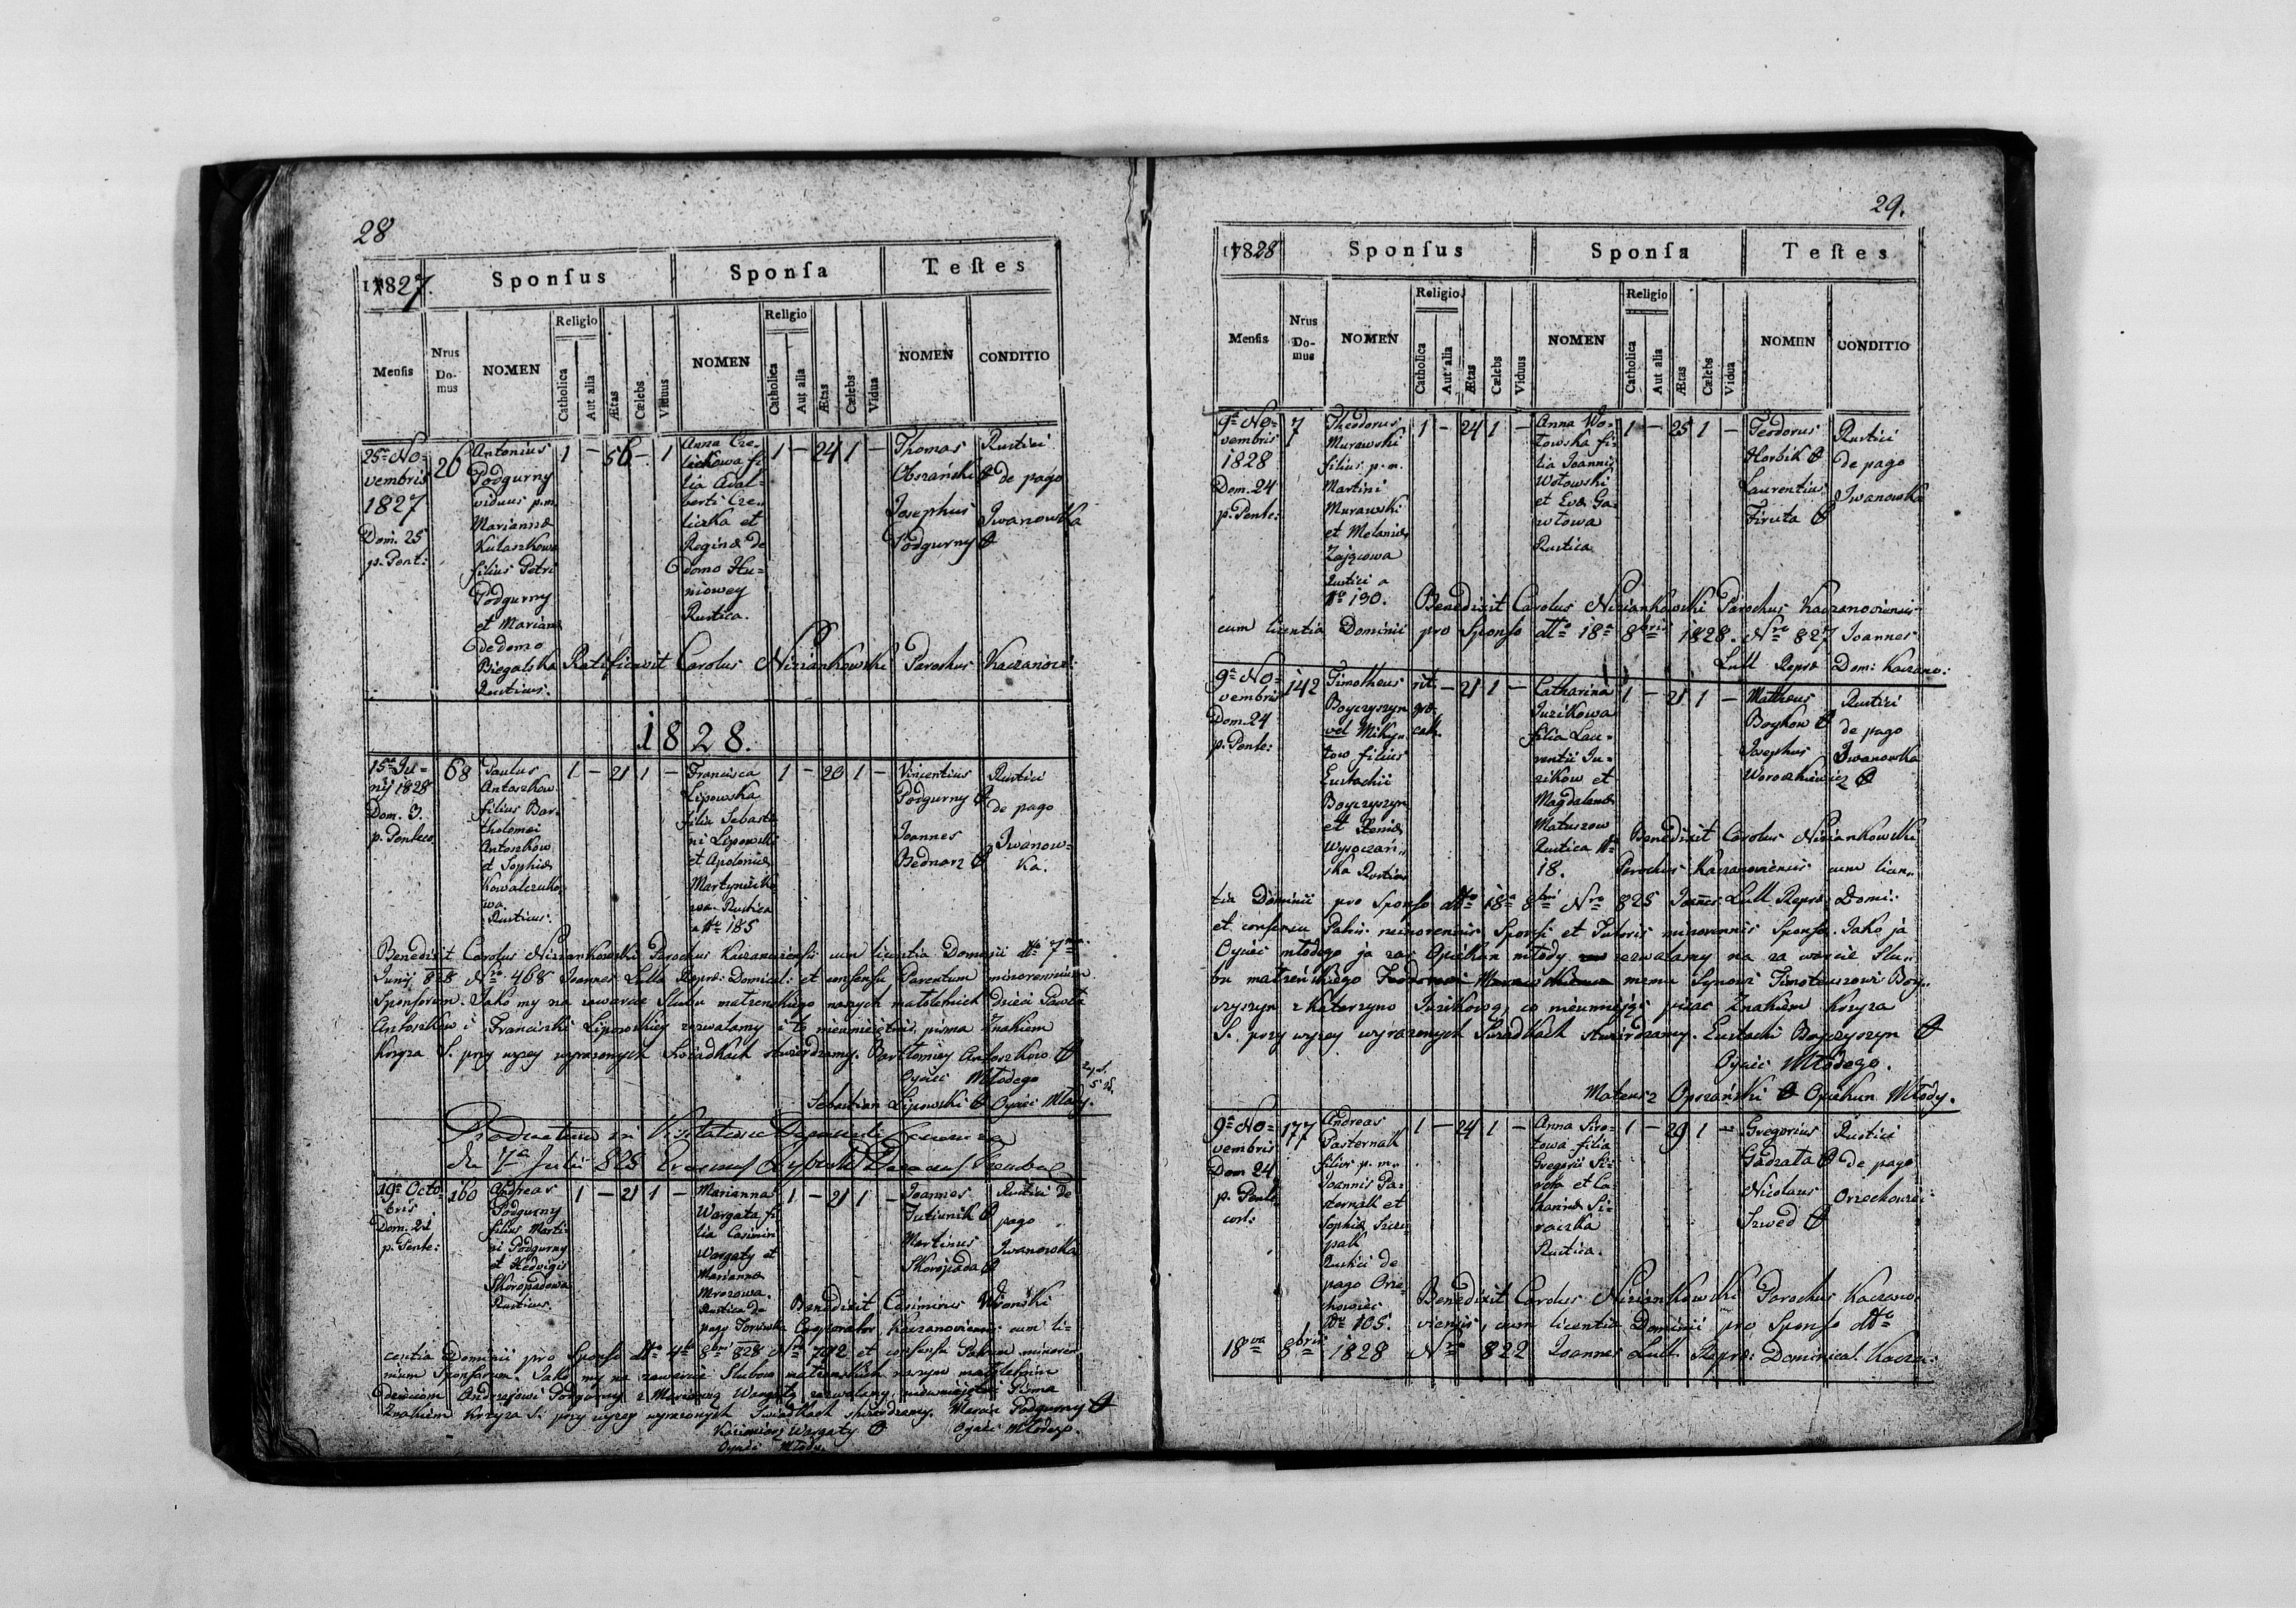 28
1827.
Sponſus
Sponſa
Teſtes
Menſis
Nrus Domus
NOMEN
Religio
Catholica
Aut alia
Ætas
Cælebs
Viduus
NOMEN
Religio
Catholica
Aut alia
Ætas
Cælebs
Vidua
NOMEN
CONDITIO
25a No-
vembris
1827
Dom. 25
p. Pent:
26
Antonius
Podgurny
viduus p.m.
Marianna
filius Petri
Podgurny
et Mariana
de domo
Biegalska
Rusticus.
1 — 56 — 1
Anna Cze-
lichowa fi
lia Adal-
berti Cze-
liczka et
Regina de
domo Hu-
niowey
Rustica.
1 — 24 1 —
Thomas
Obszański
Josephus
Podgurny
Rustici
de pago
Iwanowka
Ratificavit Carolus Niziankowski Parochus Kaczanovi:
1828.
15a Ju-
nij 1828
Dom. 3.
p. Pentec
68
Paulus
Antoszkow
filius Bar-
tholomei
Antoszkow
et Sophia
Kowalczuko
wa.
Rusticus.
1 — 21 1 —
Francisca
Lipowska
filia Sebasti
ni Lipowski
et Apolonia
Rustica
a No 185
1 — 20 1 —
Vincentius
Podgurny
Joannes
Bednarz
Rustici
de pago
Iwanow-
ka.
Benedixit Carolus Niziankowski Parochus Kaczanoviensis cum licentia Dominii dtto 7ma
Junij 828 Nro 468 Joannes Lulla Repræ: Dominical: et consensu Parentum minorennium
Sponsorum. Jako my na zawarcie Slubu matzenskiego naszych matoletnich dzieci Pawła
Antoszkow i Franciszki Lipowskiey zezwalamy i to nieumieiętni pisma Znakiem
Krzyza S. przy wyzey wyrazonych Swiadkach stwierdzamy. Bartłomiey Antoszkow
Oyciec Młodego
Sebastian Lipowski Oyciec Młody.
19a Octo-
bris
Dom. 21
p. Pente:
160
Andreas
Podgurny
filius Marti-
ni Podgurny
et Hedvigis
Skoropadowa
Rusticus.
1 — 21 1 —
Marianna
Wargata fi-
lia Casimiri
Wargaty et
Marianna
Mrozowa.
Rustica de
pago
1 — 21 1 —
Joannes
Jutiunik
Martinus
Skoropada
Rustici de
pago
Iwanowka
Benedixit Casimirus
Cooperator Kaczanoviensis cum li-
centia Dominii pro Sponso dtto 4ta 8bris 828 Nro 792 et consensu Patrum minoren
nium Sponsorum. Jako my na zawarcie Slubow matzenskich naszym matoletnim
dzieciom Andrzejowi Podgurny z Marianną Wargatą zezwalamy, nieumieiętni Pisma
Znakiem Krzyza S. przy wyzey wyrazonych Swiadkach stwierdzamy. Marcin Podgurny
Kazimierz Wargaty Oyciec Młodego.
Oyciec Młody.
29.
1828
Sponſus
Sponſa
Teſtes
Menſis
Nrus Domus
NOMEN
Religio
Catholica
Aut alia
Ætas
Cælebs
Viduus
NOMEN
Religio
Catholica
Aut alia
Ætas
Cælebs
Vidua
NOMEN
CONDITIO
9a No-
vembris
1828
Dom. 24
p. Pente:
7
Theodorus
Murawski
filius p.m.
Martini
Murawski
et Melania
Zającowa
Rustici a
No 190.
1 — 24 1 —
Anna Wo-
towska fi-
lia Joannis
Wotowski
et Eva Ga-
wtowa
Rustica
1 — 25 1 —
Teodorus
Horbik
Laurentius
Firuta
Rustici
de pago
Iwanowka
Benedixit Carolus Niziankowski Parochus Kaczanoviensis
cum licentia Dominii pro Sponso dtto 18a 8bris 1828. Nro 827 Joannes
Lull Repræ Dom: Kaczano:
9a No-
vembris
Dom. 24
p. Pente:
142
Timotheus
Boyczyszyn
vel Miky-
tow filius
Eustachii
Boyczyszyn
et Xenia
Wysoczań-
ska Rustica
rit.
græ.
cath.
— 21 1 —
Catharina
Juzikowa
filia Lau-
rentii Ju-
zikow et
Magdalena
Matuszow
Rustica No
18.
1 — 21 1 —
Mattheus
Boykow
Josephus
Woroszkiewicz
Rustici
de pago
Iwanowka
Benedixit Carolus Niziankowski
Parochus Kaczanoviensis cum licen-
tia Dominii pro Sponso dtto 18a 8bris Nro 825 Joannes Lull Repræ: Domi:
et consensu Patris minorennis Sponsi et Tutoris minorennis Sponsa. Jako ja
Oyciec młodego ja zas Opiekun młody zezwalamy na zawarcie Slu-
bu matzeńskiego memu Synowi Timoteuszowi Boy-
czyszyn z Katarzyną Juzikową, co nieumiejąc pisac Znakiem Krzyza
S. przy wyzey wyrazonych Swiadkach stwierdzamy. Eustachi Boyczyszyn
Oyciec Młodego.
Mateusz Opszański Opiekun Młody.
9a No-
vembris
Dom 24
p. Pente
cost:
177
Andreas
Pasternak
filius p.m.
Joannis Pa-
sternak et
Sophia Szcze-
pak
Rustici de
pago Orze-
chowiec
No 105.
1 — 24 1 —
Anna Siro-
towa filia
Gregorii Si-
rota et Ca-
tharina Si-
roczka
Rustica.
1 — 29 1 —
Gregorius
Gadzata
Nicolaus
Szwed
Rustici
de pago
Orzechowiec:
Benedixit Carolus Niziankowski Parochus Kaczano-
viensis, cum licentia Dominii pro Sponso dtto
18va 8bris 1828 Nro 822 Joannes Lull Repræ: Dominical. Kacza: